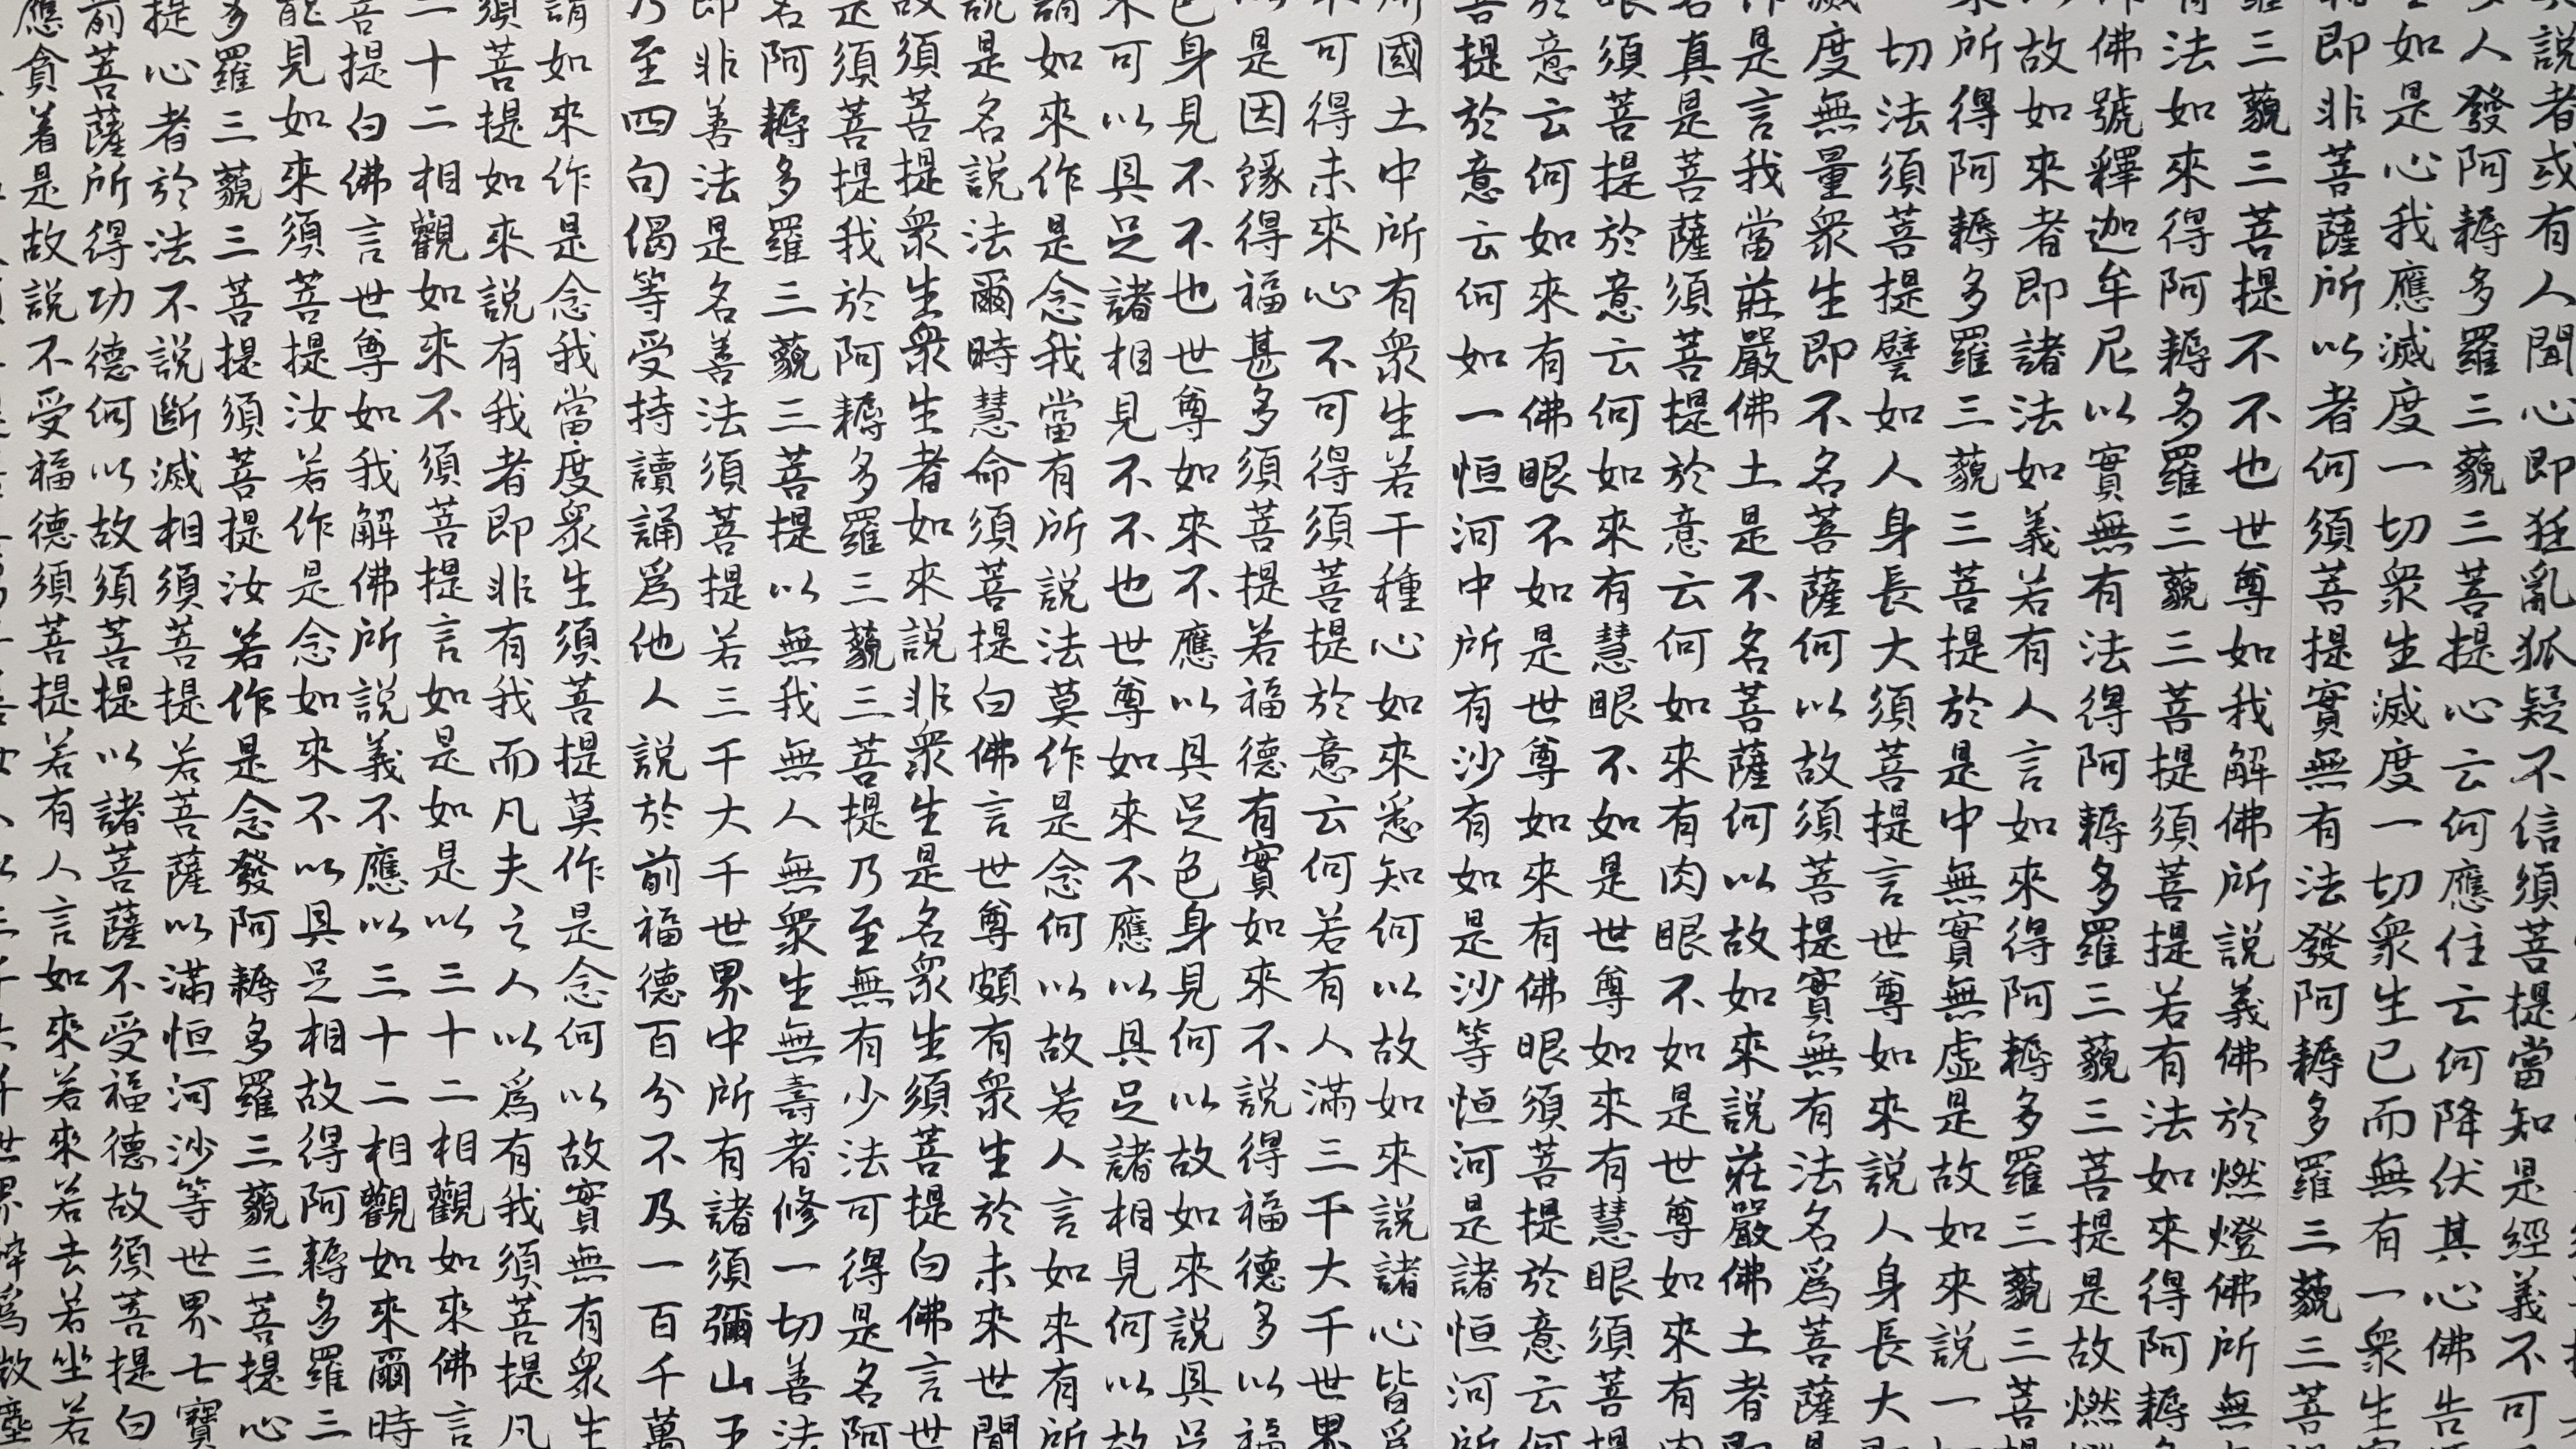 說者或有人聞心即狂亂狐疑不信須菩提當知是經義不可
人發阿耨多羅三藐三菩提心云何應住云何降伏其心佛告
如是心我應滅度一切眾生滅度一切眾生已而無有一眾生
即非菩薩所以者何須菩提實無有法發阿耨多羅三藐三菩
羅三藐三菩提不不也世尊如我解佛所說義佛於燃燈佛所無
法如來得阿耨多羅三藐三菩提須菩提若有法如來得阿耨
佛號釋迦牟尼以實無有法得阿耨多羅三藐三菩提是故燃
故如來者即諸法如義若有人言如來得阿耨多羅三藐三菩
所得阿耨多羅三藐三菩提於是中無實無虛是故如來說一
切法須菩提譬如人身長大須菩提言世尊如來說人身長大
度無量眾生即不名菩薩何以故須菩提實無有法名爲菩薩
是言我當莊嚴佛土是不名菩薩何以故如來說莊嚴佛土者
真是菩薩須菩提於意云何如來有肉眼不如是世尊如來有
眼須菩提於意云何如來有慧眼不如是世尊如來有慧眼須菩
意云何如來有佛眼不如是世尊如來有佛眼須菩提於意云
菩提於意云何如一恒河中所有沙有如是沙等恒河是諸恒河
國土中所有眾生若干種心如來悉知何以故如來說諸心皆爲
可得未來心不可得須菩提於意云何若有人滿三千大千世界
是因緣得福甚多須菩提若福德有實如來不說得福德多以福
色身見不不也世尊如來不應以具足色身見何以故如來說具足
可以具足諸相見不不也世尊如來不應以具足諸相見何以故
謂如來作是念我當有所說法莫作是念何以故若人言如來有所
說是名說法爾時慧命須菩提白佛言世尊頗有眾生於未來世聞
故須菩提眾生眾生者如來說非眾生是名眾生須菩提白佛言世
是須菩提我於阿耨多羅三藐三菩提乃至無有少法可得是名阿
名阿耨多羅三藐三菩提以無我無人無眾生無壽者修一切善法
即非善法是名善法須菩提若三千大千世界中所有諸須彌山王
乃至四句偈等受持讀誦爲他人說於前福德百分不及一百千萬
謂如來作是念我當度眾生須菩提莫作是念何以故實無有眾生
須菩提如來說有我者即非有我而凡夫之人以爲有我須菩提凡
十二相觀如來不須菩提言如是如是以三十二相觀如來佛言
菩提白佛言世尊如我解佛所說義不應以三十二相觀如來爾時
能見如來須菩提汝若作是念如來不以具足相故得阿耨多羅三
多羅三藐三菩提須菩提汝若作是念發阿耨多羅三藐三菩提心
提心者於法不說斷滅相須菩提若菩薩以滿恒河沙等世界七寶
前菩薩所得功德何以故須菩提以諸菩薩不受福德故須菩提白
應貪着是故說不受福德須菩提若有人言如來若來若去若坐若
世界碎爲微塵